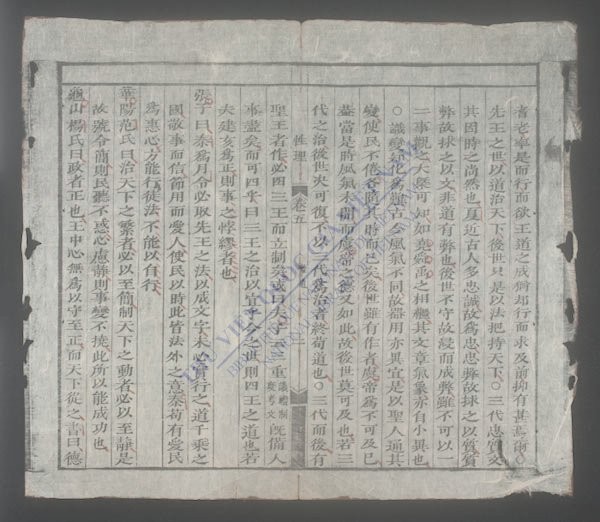 者老率是而行而欲王道之成猶却行而求及前抑有甚焉爾○
先王之世以道治天下後世只是以法把持天下○三代忠質文
其因時之尚然也夏近古人多忠誠故為忠忠弊故救之以質質
弊故救之以文非道有弊也後世不守故浸而成弊雖不可以一
二事觀之大槩可知如堯舜禹之相繼其文章氣象亦自小異也
○識變知化為難古今風氣不同故器用亦異宜是以聖人通其
變使民不倦各隨其時而已矣後世雖有作者虞帝為不可及已
蓋當是時風氣未開而虞帝之德又如此故後世莫可及也若三
代之治後世决可復不以三代為治者終苟道也○三代而後有
性理 卷五
聖王者作必四三王而立制矣或曰夫子云三重議禮制度考文既備人
事盡矣而可四乎曰三王之治以宜乎今之世則四王之道也若
夫建亥為正則事之悖繆者也
張子曰秦為月令必取先王之法以成文字未必實行之道千乘之
國敬事而信節用而愛人使民以時此皆法外之意秦苟有愛民
為惠心方能行徒法不能以自行
華陽范氏曰治天下之繁者必以至簡制天下之動者必以至靜是
故號令簡則民聽不惑心慮靜則事變不撓此所以能成功也
龜山楊氏曰政者正也王中心無為以守至正而天下從之書曰德